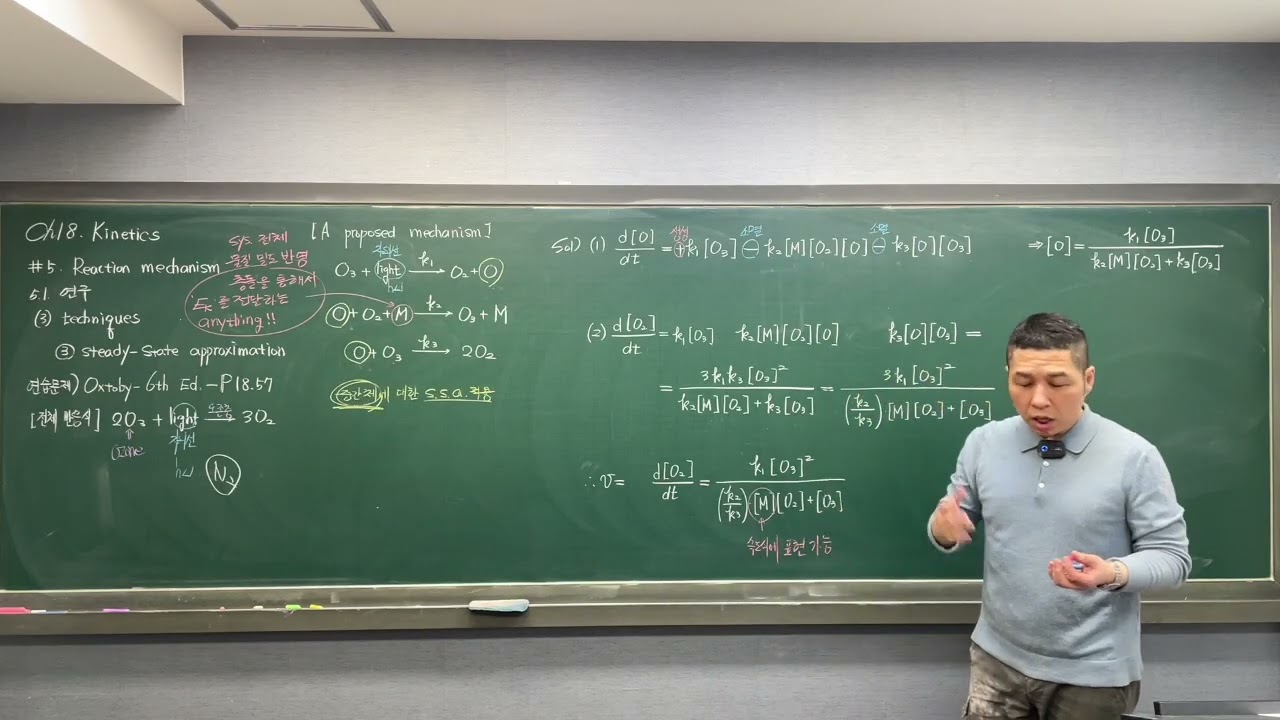 Ch18. Kinetics
#5. Reaction mechanism
5.1 연구
(3) techniques
③ steady-state approximation
연습문제) Oxtoby-6th Ed.-P18.57
[전체 반응식] 2O₃ + light → 3O₂
자외선
hν
N₂
충돌을 통해서
Eₖ를 전달하는
anything!!
[A proposed mechanism]
자외선
O₃ + light —k₁→ O₂ + O
hν
O + O₂ + M —k₂→ O₃ + M
O + O₃ —k₃→ 2O₂
중간체에 대한 s.s.a. 적용
생성 소멸 소멸
Sol) (1) d[O]/dt = ⊕k₁[O₃] ⊖ k₂[M][O₂][O] ⊖ k₃[O][O₃] ⇒ [O] = k₁[O₃] / k₂[M][O₂]+k₃[O₃]
(2) d[O₂]/dt = k₁[O₃] k₂[M][O₂][O] k₃[O][O₃] =
= 3k₁k₃[O₃]² / k₂[M][O₂]+k₃[O₃] = 3k₁[O₃]² / (k₂/k₃)[M][O₂]+[O₃]
∴ v = d[O₂]/dt = k₁[O₃]² / (k₂/k₃)[M][O₂]+[O₃]
속도식에 표현 가능